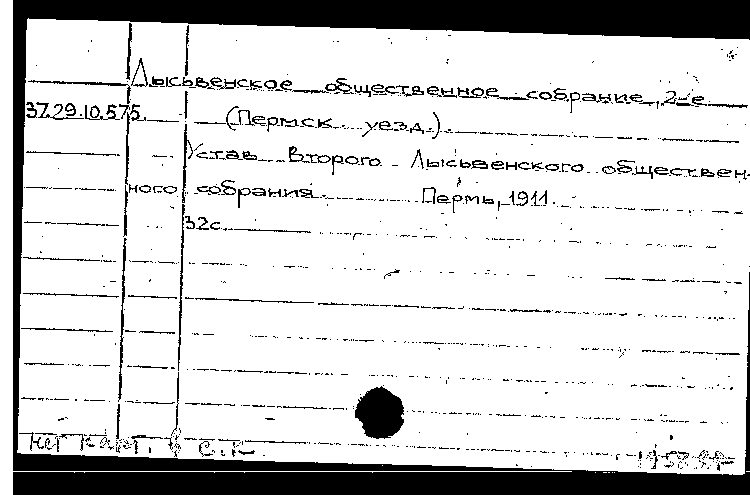 Лысьвенское общественное собрание, 2-е
37.29.10.575. (Пермск. уезд.).
Устав Второго Лысьвенского обществен-
ного собрания. Пермь, 1911.
32с.
нет карт. в С.К.